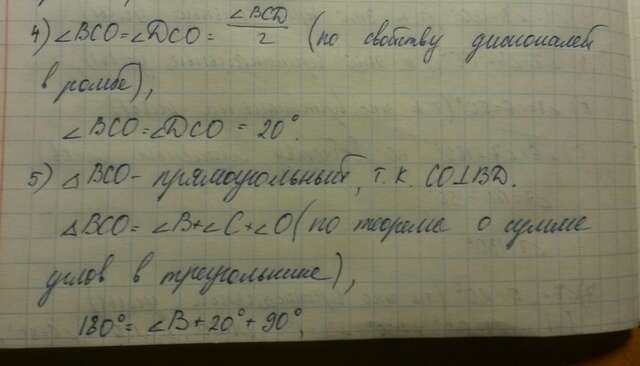 4) ∠BCO=∠DCO= ∠BCD/2 (по свойству диагоналей
в ромбе),
∠BCO=∠DCO = 20°.
5) △BCO- прямоугольный, т.к. CO⊥BD.
△BCO= ∠B+∠C+∠O (по теореме о сумме
углов в треугольнике),
180°= ∠B+20°+90°,